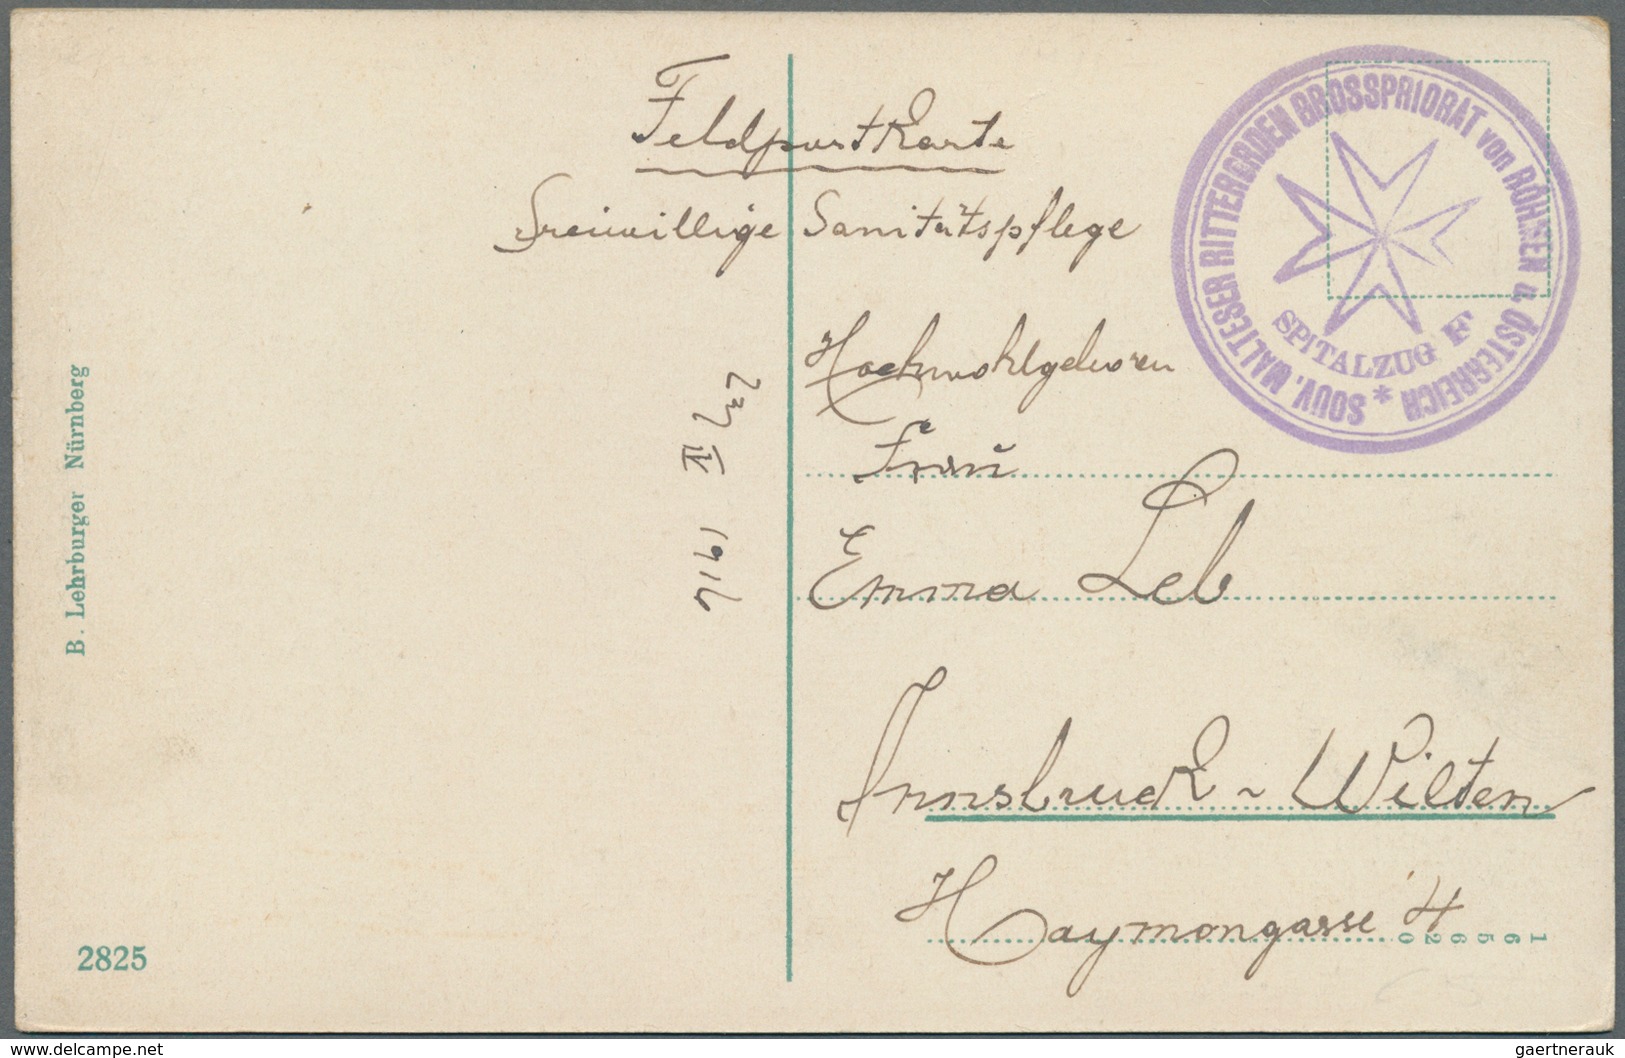 Feldpostkarte
Freiwillige Sanitätspflege
SOUV. MALTESER RITTERORDEN GROSSPRIORAT von BÖHMEN u. ÖSTERREICH *
SPITALZUG F
Hochwohlgeboren
Frau
Emma Leb
Innsbruck - Wilten
Haymongasse 4
IV 1916
B. Lehrburger Nürnberg
2825
165620
gaertnerauk